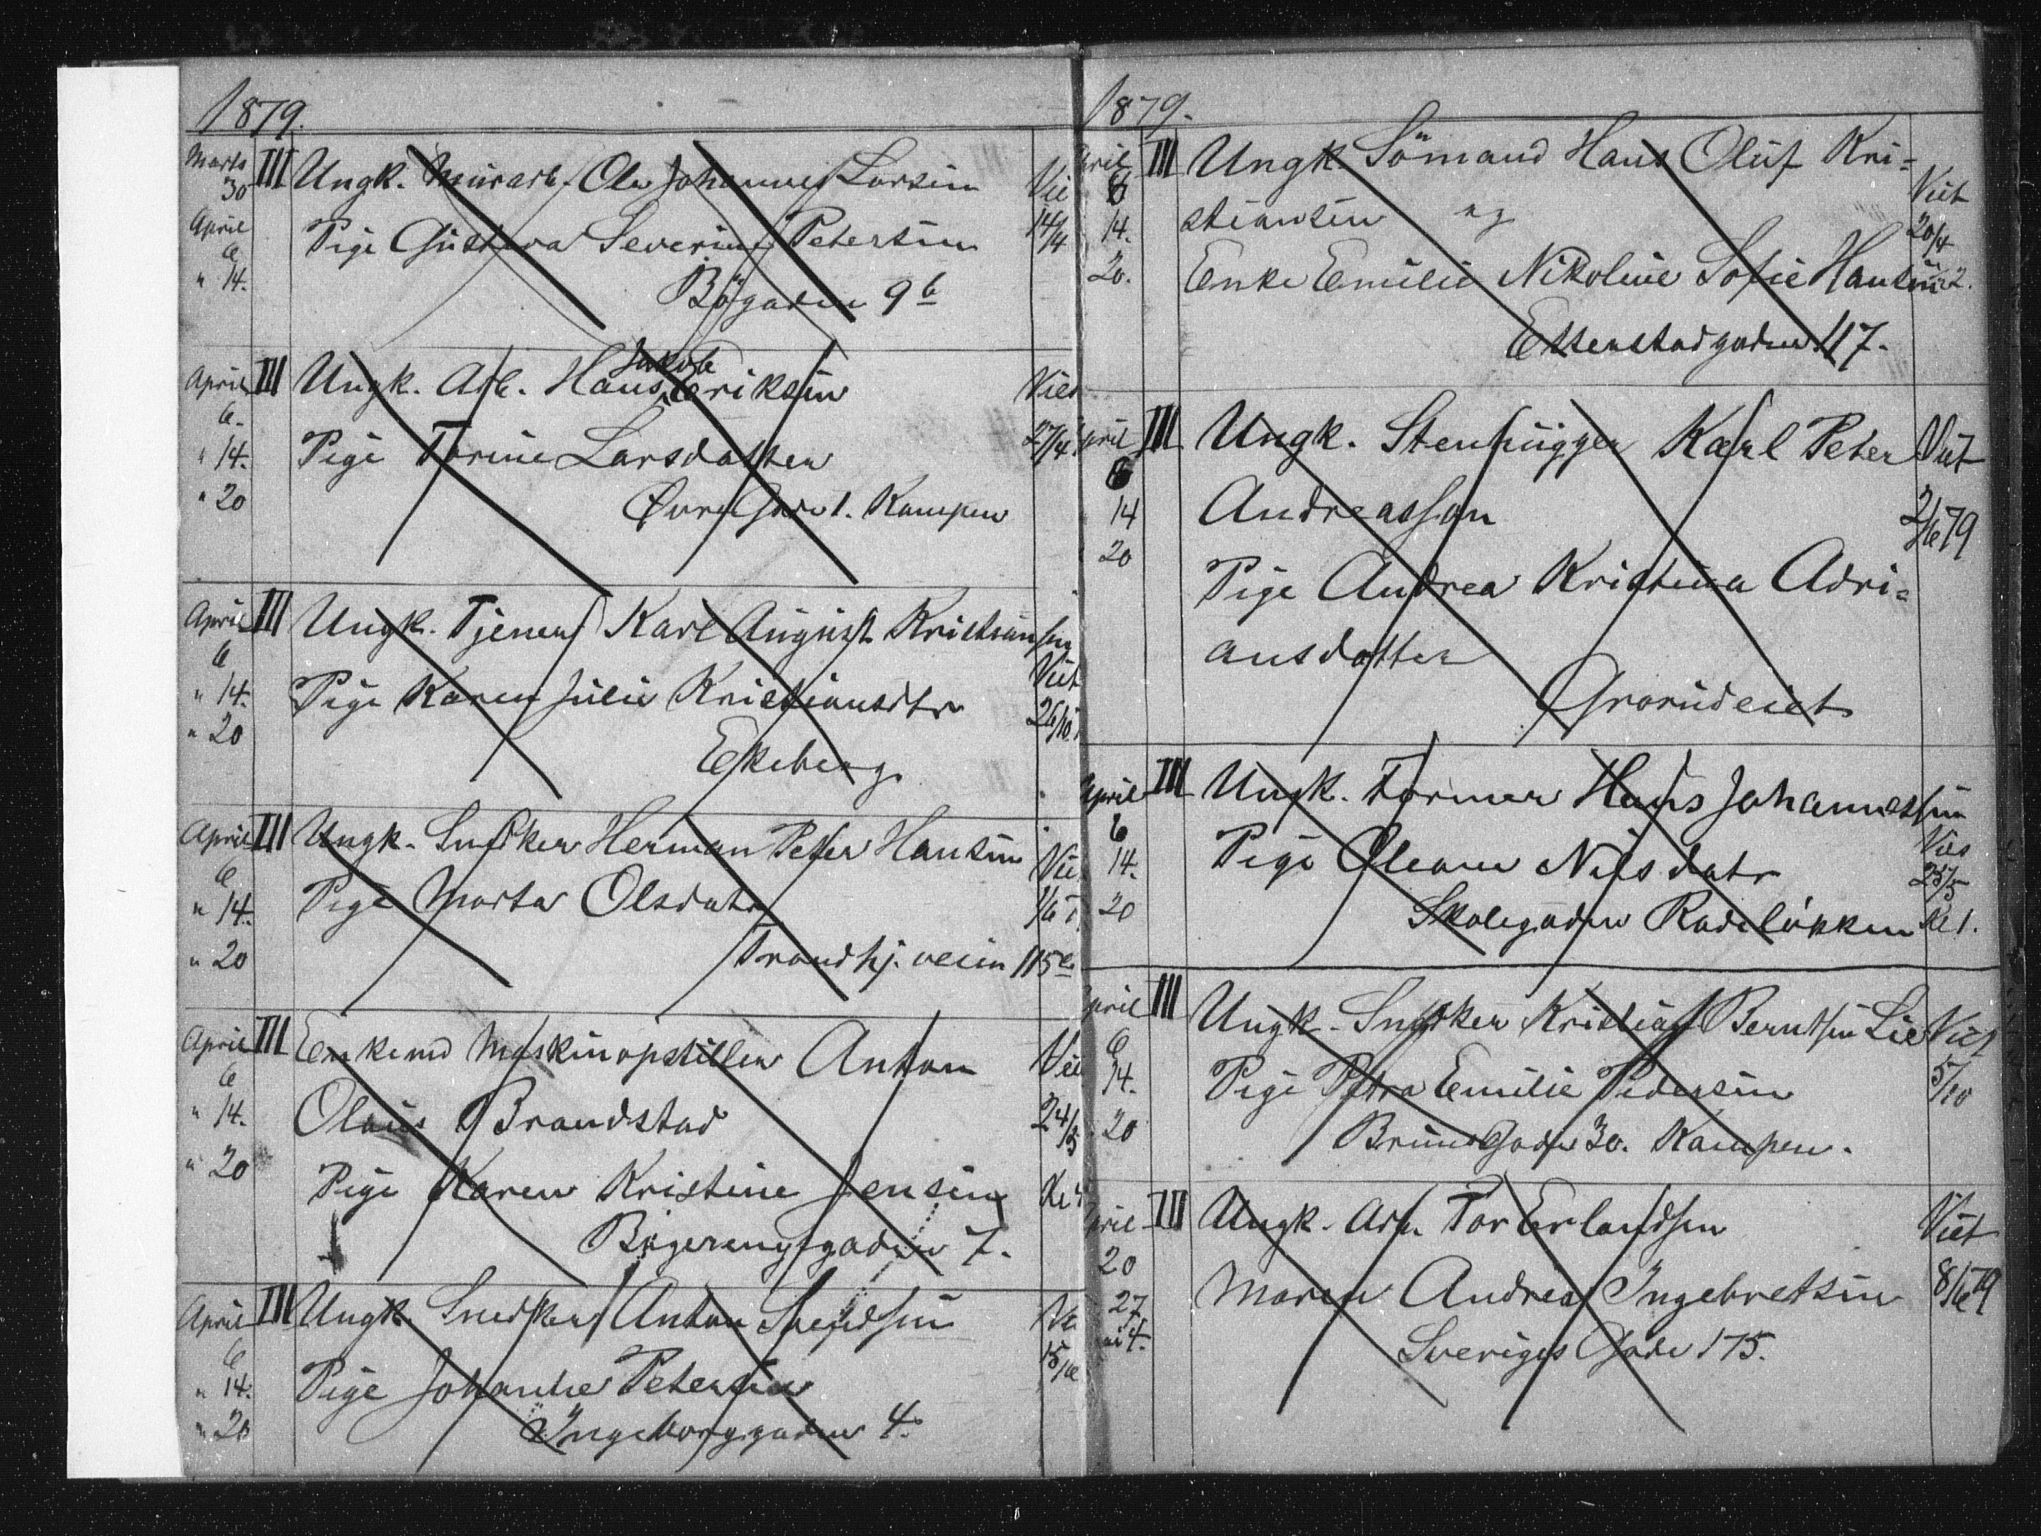 1879.
Marts 30 III Ungk. Murarb. Ole Johannes Larsen Vie
April 6 Pige Gustava Severine Petersen 14/4
" 14. Bögaden 9b
April III Ungk. Arb. Hans Jakob Eriksen Viet
6. Pige Torine Larsdatter 27/4
" 14.
" 20 Øvre Gade 1. Kampen
April III Ungk. Tjener Karl August Kristiansen
6 Viet
" 14. Pige Karen Julie Kristiansdtr 26/10
" 20 Ekeberg
April III Ungk. Snedker Herman Peter Hansen Vie
6 Pige Marta Olsdatr 1/6
" 14.
" 20 Trondhj. veien 115e
April III Enkemd Maskinopstiller Anton Vie
6 Olaus Brandstad 24/5
" 14.
" 20 Pige Karen Kristine Jensen Kl 4
7.
April III Ungk. Snedker Anton Svendsen
6 Pige Johanne Petersen
" 14.
" 20 Ingeborggaden 4.
1879.
April III Ungk. Sömand Hans Oluf Kri-
6 Viet
14. stiansen og 20/4
20. Enke Emilie Nikoline Sofie Hansen
Ettersladgaden 117.
April III Ungk. Stenhugger Karl Peter Viet
6
14 Andreasson 2/6 79
20
Pige Andrea Kristina Adri-
ansdatter
Grorudeiet
April III Ungk. Former Hans Johannessen
6 Viet
14. Pige Oleane Nilsdatr 25/5
20 Skolegaden Rodeløkken Kl 1.
April III Ungk. Snedker Kristian Berntsen Lie Viet
6
14. Pige Petra Emilie Pedersen 5/10
20 Bruns Gade 30. Kampen.
April III Ungk. Arb. Tor Erlandsen Viet
20
27 Maren Andrea Ingebretsen 8/6 79
Mai 4. Sveriges Gade 175.